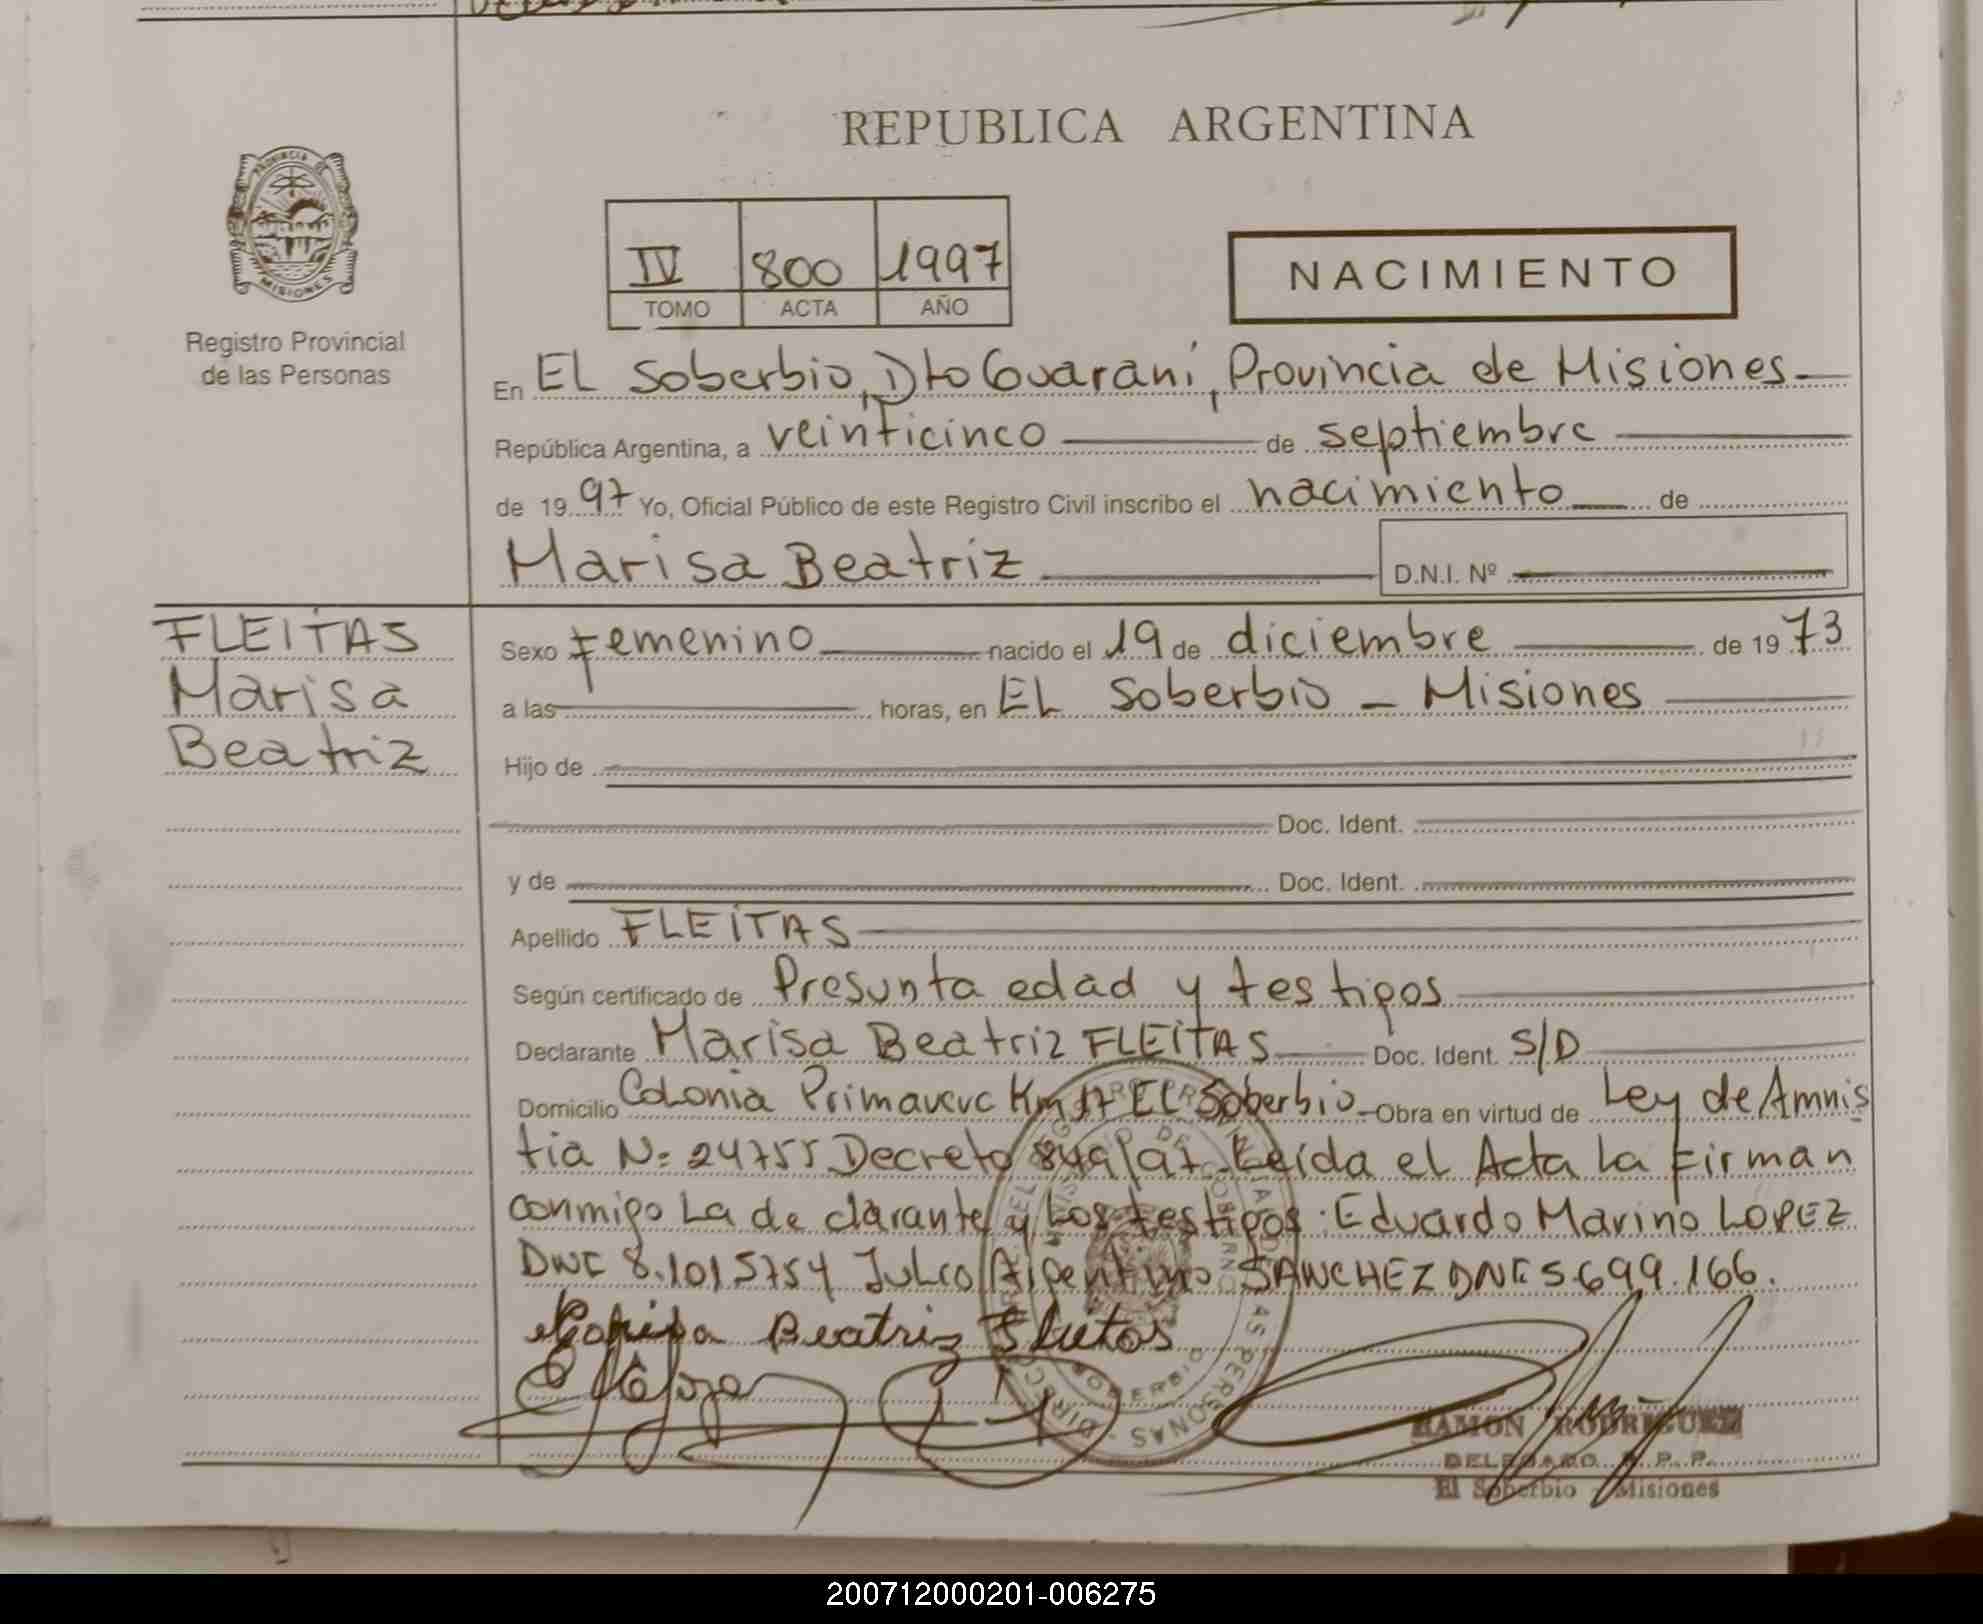 REPUBLICA ARGENTINA
PROVINCIA DE
MISIONES
Registro Provincial
de las Personas
IV 800 1997
TOMO ACTA AÑO
NACIMIENTO
En EL Soberbio, Dto Guaraní, Provincia de Misiones
República Argentina, a veinticinco de septiembre
de 1997 Yo, Oficial Público de este Registro Civil inscribo el nacimiento de
Marisa Beatriz D.N.I. Nº
FLEITAS
Marisa
Beatriz
Sexo Femenino nacido el 19 de diciembre de 1973
a las horas, en EL Soberbio - Misiones
Hijo de
Doc. Ident.
y de Doc. Ident.
Apellido FLEITAS
Según certificado de Presunta edad y testigos
Declarante Marisa Beatriz FLEITAS Doc. Ident. S/D
Domicilio Colonia Primavera Km 17 EL Soberbio - Obra en virtud de Ley de Amnis
tia N: 24755 Decreto 849/97. Leída el Acta La Firman
conmigo La declarante y Los testigos: Eduardo Marino LOPEZ
DNI 8.1015754 Julio Argentino SANCHEZ DNI 5.699.166.
Marisa Beatriz Fleitas
RAMON RODRIGUEZ
DELEGADO R. P. P.
El Soberbio - Misiones
200712000201-006275